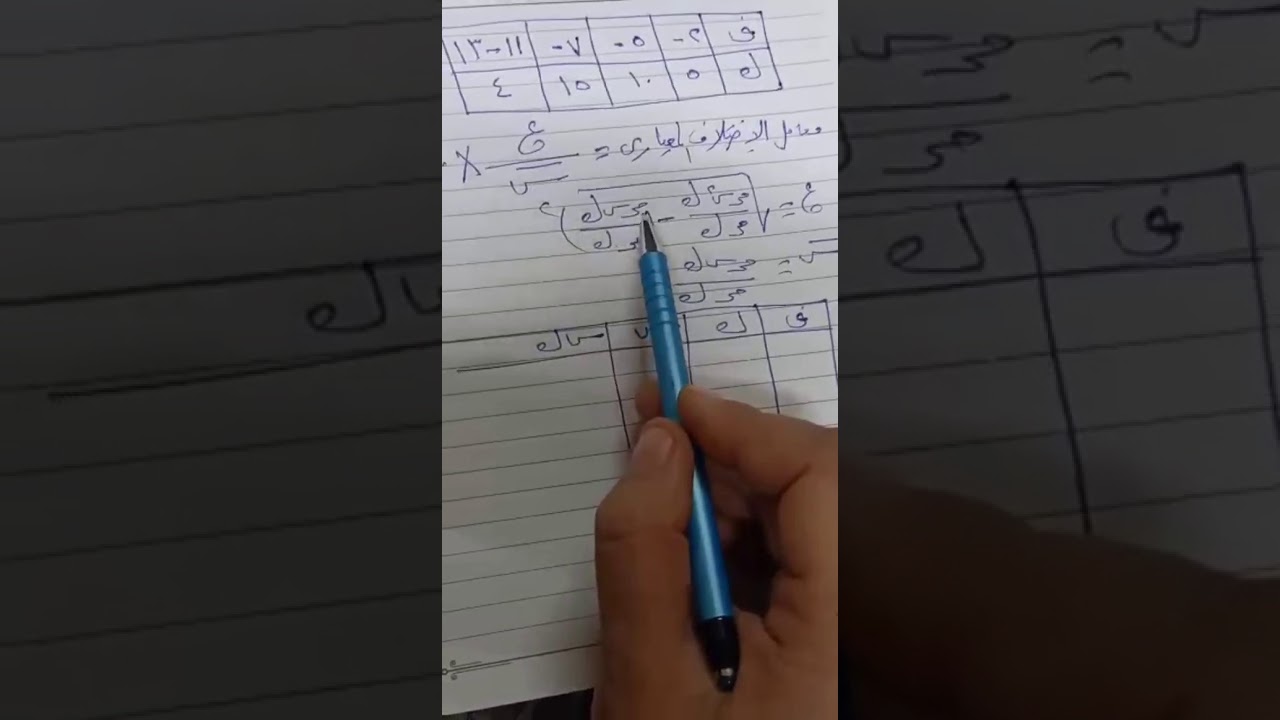 ف ٢- ٥- ٧- ١١-١٣
ك ٥ ١٠ ١٥ ٤
معامل الإختلاف المعيارى = ع/س̄ ×
ع = √(مجـ س٢ك/مجـ ك - (مجـ س ك/مجـ ك)٢)
س̄ = مجـ س ك/مجـ ك
ف ك س س ك